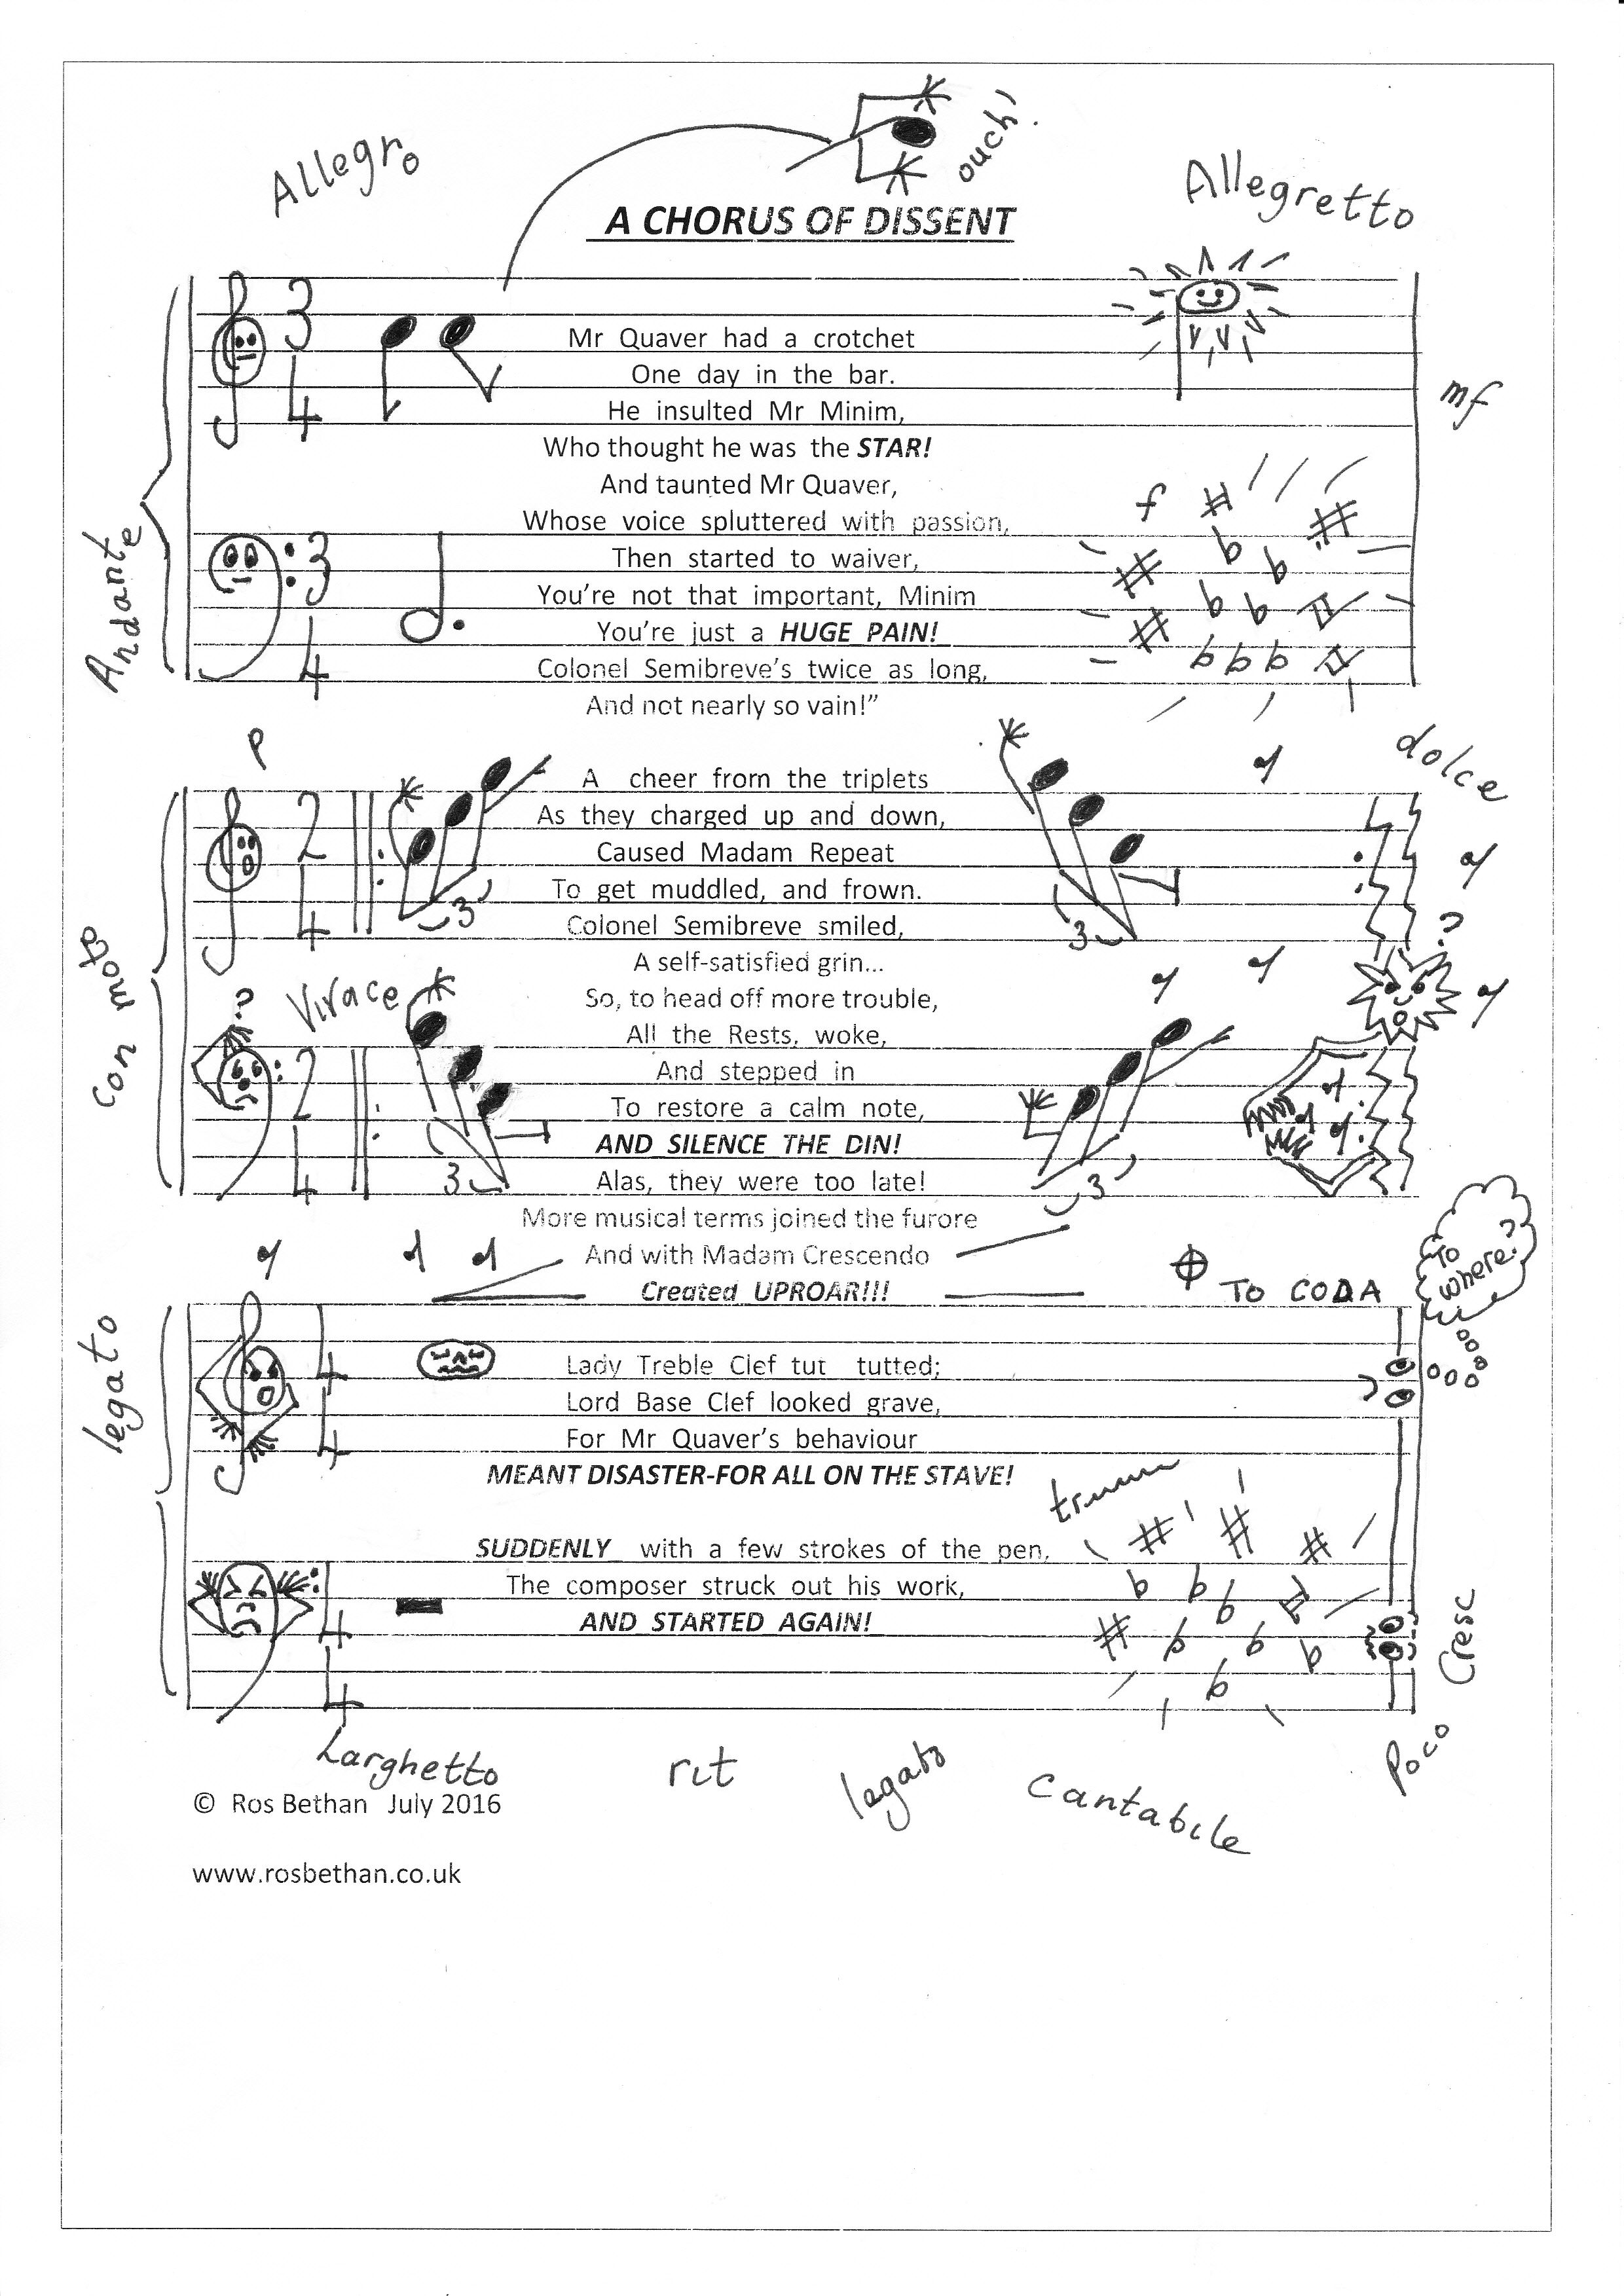 Allegro
ouch!
Allegretto
A CHORUS OF DISSENT
3
4
Mr Quaver had a crotchet
One day in the bar.
He insulted Mr Minim,
mf
Who thought he was the STAR!
And taunted Mr Quaver,
f
Whose voice spluttered with passion,
Andante
3
4
Then started to waiver,
You're not that important, Minim
You're just a HUGE PAIN!
Colonel Semibreve's twice as long,
And not nearly so vain!"
p
dolce
2
4
A cheer from the triplets
As they charged up and down,
Caused Madam Repeat
To get muddled, and frown.
3
3
Colonel Semibreve smiled,
?
con moto
A self-satisfied grin...
?
Vivace
So, to head off more trouble,
All the Rests, woke,
2
4
And stepped in
To restore a calm note,
AND SILENCE THE DIN!
3
3
Alas, they were too late!
More musical terms joined the furore
And with Madam Crescendo
Created UPROAR!!!
TO CODA
To where?
legato
4
4
Lady Treble Clef tut tutted;
Lord Base Clef looked grave,
For Mr Quaver's behaviour
MEANT DISASTER-FOR ALL ON THE STAVE!
tr
SUDDENLY with a few strokes of the pen,
The composer struck out his work,
AND STARTED AGAIN!
4
4
Poco Cresc
Larghetto
rit
legato
Cantabile
© Ros Bethan July 2016
www.rosbethan.co.uk